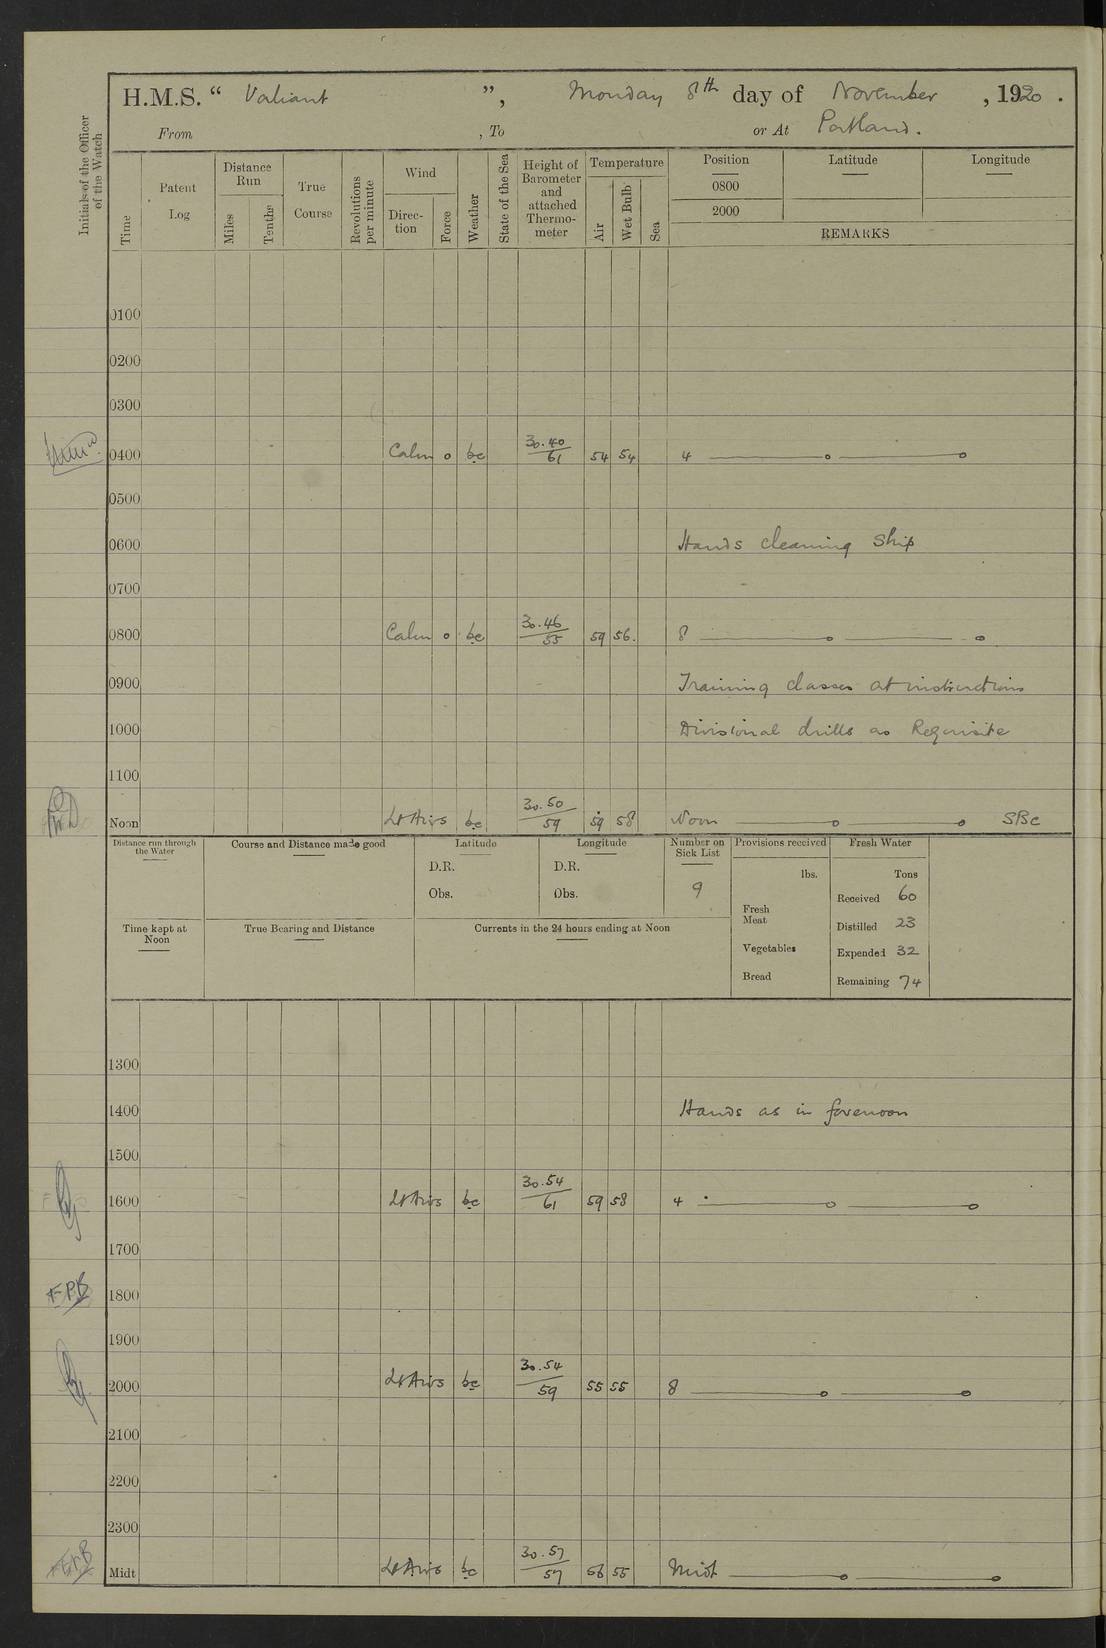 H.M.S. “ Valiant ”, Monday 8th day of November , 1920 .
From , To or At Portland.
Initials of the Officer of the Watch
Time
Patent Log
Distance Run
Miles
Tenths
True Course
Revolutions per minute
Wind
Direc-tion
Force
Weather
State of the Sea
Height of Barometer and attached Thermo-meter
Temperature
Air
Wet Bulb
Sea
Position Latitude Longitude
0800
2000
REMARKS
0100
0200
0300
0400 Calm 0 bc 30.40/61 54 54 4
0500
0600 Hands cleaning Ship
0700
0800 Calm 0 bc 30.46/55 59 56. 8
0900 Training classes at instructions
1000 Divisional drills as Requisite
1100
Noon Lt Airs bc 30.50/59 59 58 Noon SBC
Distance run through the Water
Course and Distance made good
Latitude
D.R.
Obs.
Longitude
D.R.
Obs.
Number on Sick List
9
Provisions received
lbs.
Fresh Meat
Vegetables
Bread
Fresh Water
Tons
Received 60
Distilled 23
Expended 32
Remaining 74
Time kept at Noon
True Bearing and Distance
Currents in the 24 hours ending at Noon
1300
1400 Hands as in forenoon
1500
1600 Lt Airs bc 30.54/61 59 58 4
1700
FPB 1800
1900
2000 Lt Airs bc 30.54/59 55 55 8
2100
2200
2300
Midt Lt Airs bc 30.57/57 56 55 Midt